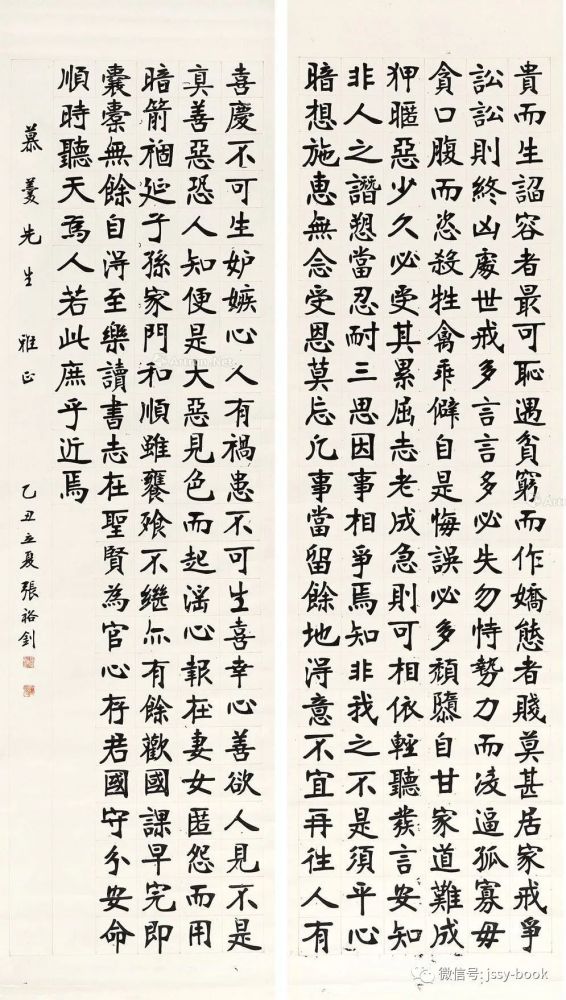 貴而生諂容者最可恥遇貧窮而作嬌態者賤莫甚居家戒爭
訟訟則終凶處世戒多言言多必失勿恃勢力而凌逼孤寡毋
貪口腹而恣殺牲禽乖僻自是悔誤必多頹隳自甘家道難成
狎暱惡少久必受其累屈志老成急則可相依輕聽發言安知
非人之譖愬當忍耐三思因事相爭焉知非我之不是須平心
暗想施惠無念受恩莫忘凡事當留餘地得意不宜再往人有
喜慶不可生妒嫉心人有禍患不可生喜幸心善欲人見不是
真善惡恐人知便是大惡見色而起淫心報在妻女匿怨而用
暗箭禍延子孫家門和順雖饔飧不繼亦有餘歡國課早完即
囊橐無餘自得至樂讀書志在聖賢為官心存君國守分安命
順時聽天為人若此庶乎近焉
慕 先生 雅正 乙丑立夏張裕釗
微信号: jssy-book